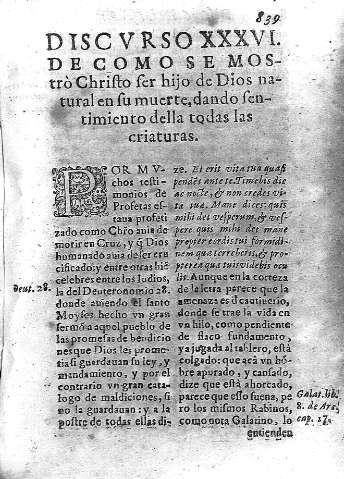 839
DISCVRSO XXXVI.
DE COMO SE MOS-
trò Christo ser hijo de Dios na-
tural en su muerte, dando sen-
timiento della todas las
criaturas.
POR MV-
chos testi-
monios de
Profetas es-
taua profeti
zado como Chr̃o auia de
morir en Cruz, y q̃ Dios
humanado auia de ser cru
cificado; y entre otras hic
celebres entre los Iudios,
la del Deuteronomio 28.
donde auiendo el santo
Moyses hecho vn gran
sermõ a aquel pueblo de
las promesas de bendicio
nes que Dios les prome-
tia si guardauan su ley, y
mandamiento, y por el
contrario vn gran cata-
logo de maldiciones, si
no la guardauan: y a la
postre de todas ellas di-
Deut. 28.
ze. Et erit vita tua quasi
pendẽs ante te. Timebis die
ac nocte, & non credes vi-
tæ tuæ. Mane dices: quis
mihi det vesperum, & ves-
pere quis mihi det mane
propter cordis tui formidi-
nem qua terreberis, & pro-
pter ea quæ tuis videbis ocu
lis. Aunque en la corteza
de la letra parece que la
amenaza es d'cautiuerio,
donde se trae la vida en
vn hilo, como pendiente
de flaco fundamento,
y a jugada al tablero, està
colgado: que acà vn hõ-
bre apurado, y cansado,
dize que està ahorcado,
parece que esso suena, pe
ro los mismos Rabinos,
como nota Galatino, lo
entienden
Galat. lib.
8. de Arc.
cap. 17.